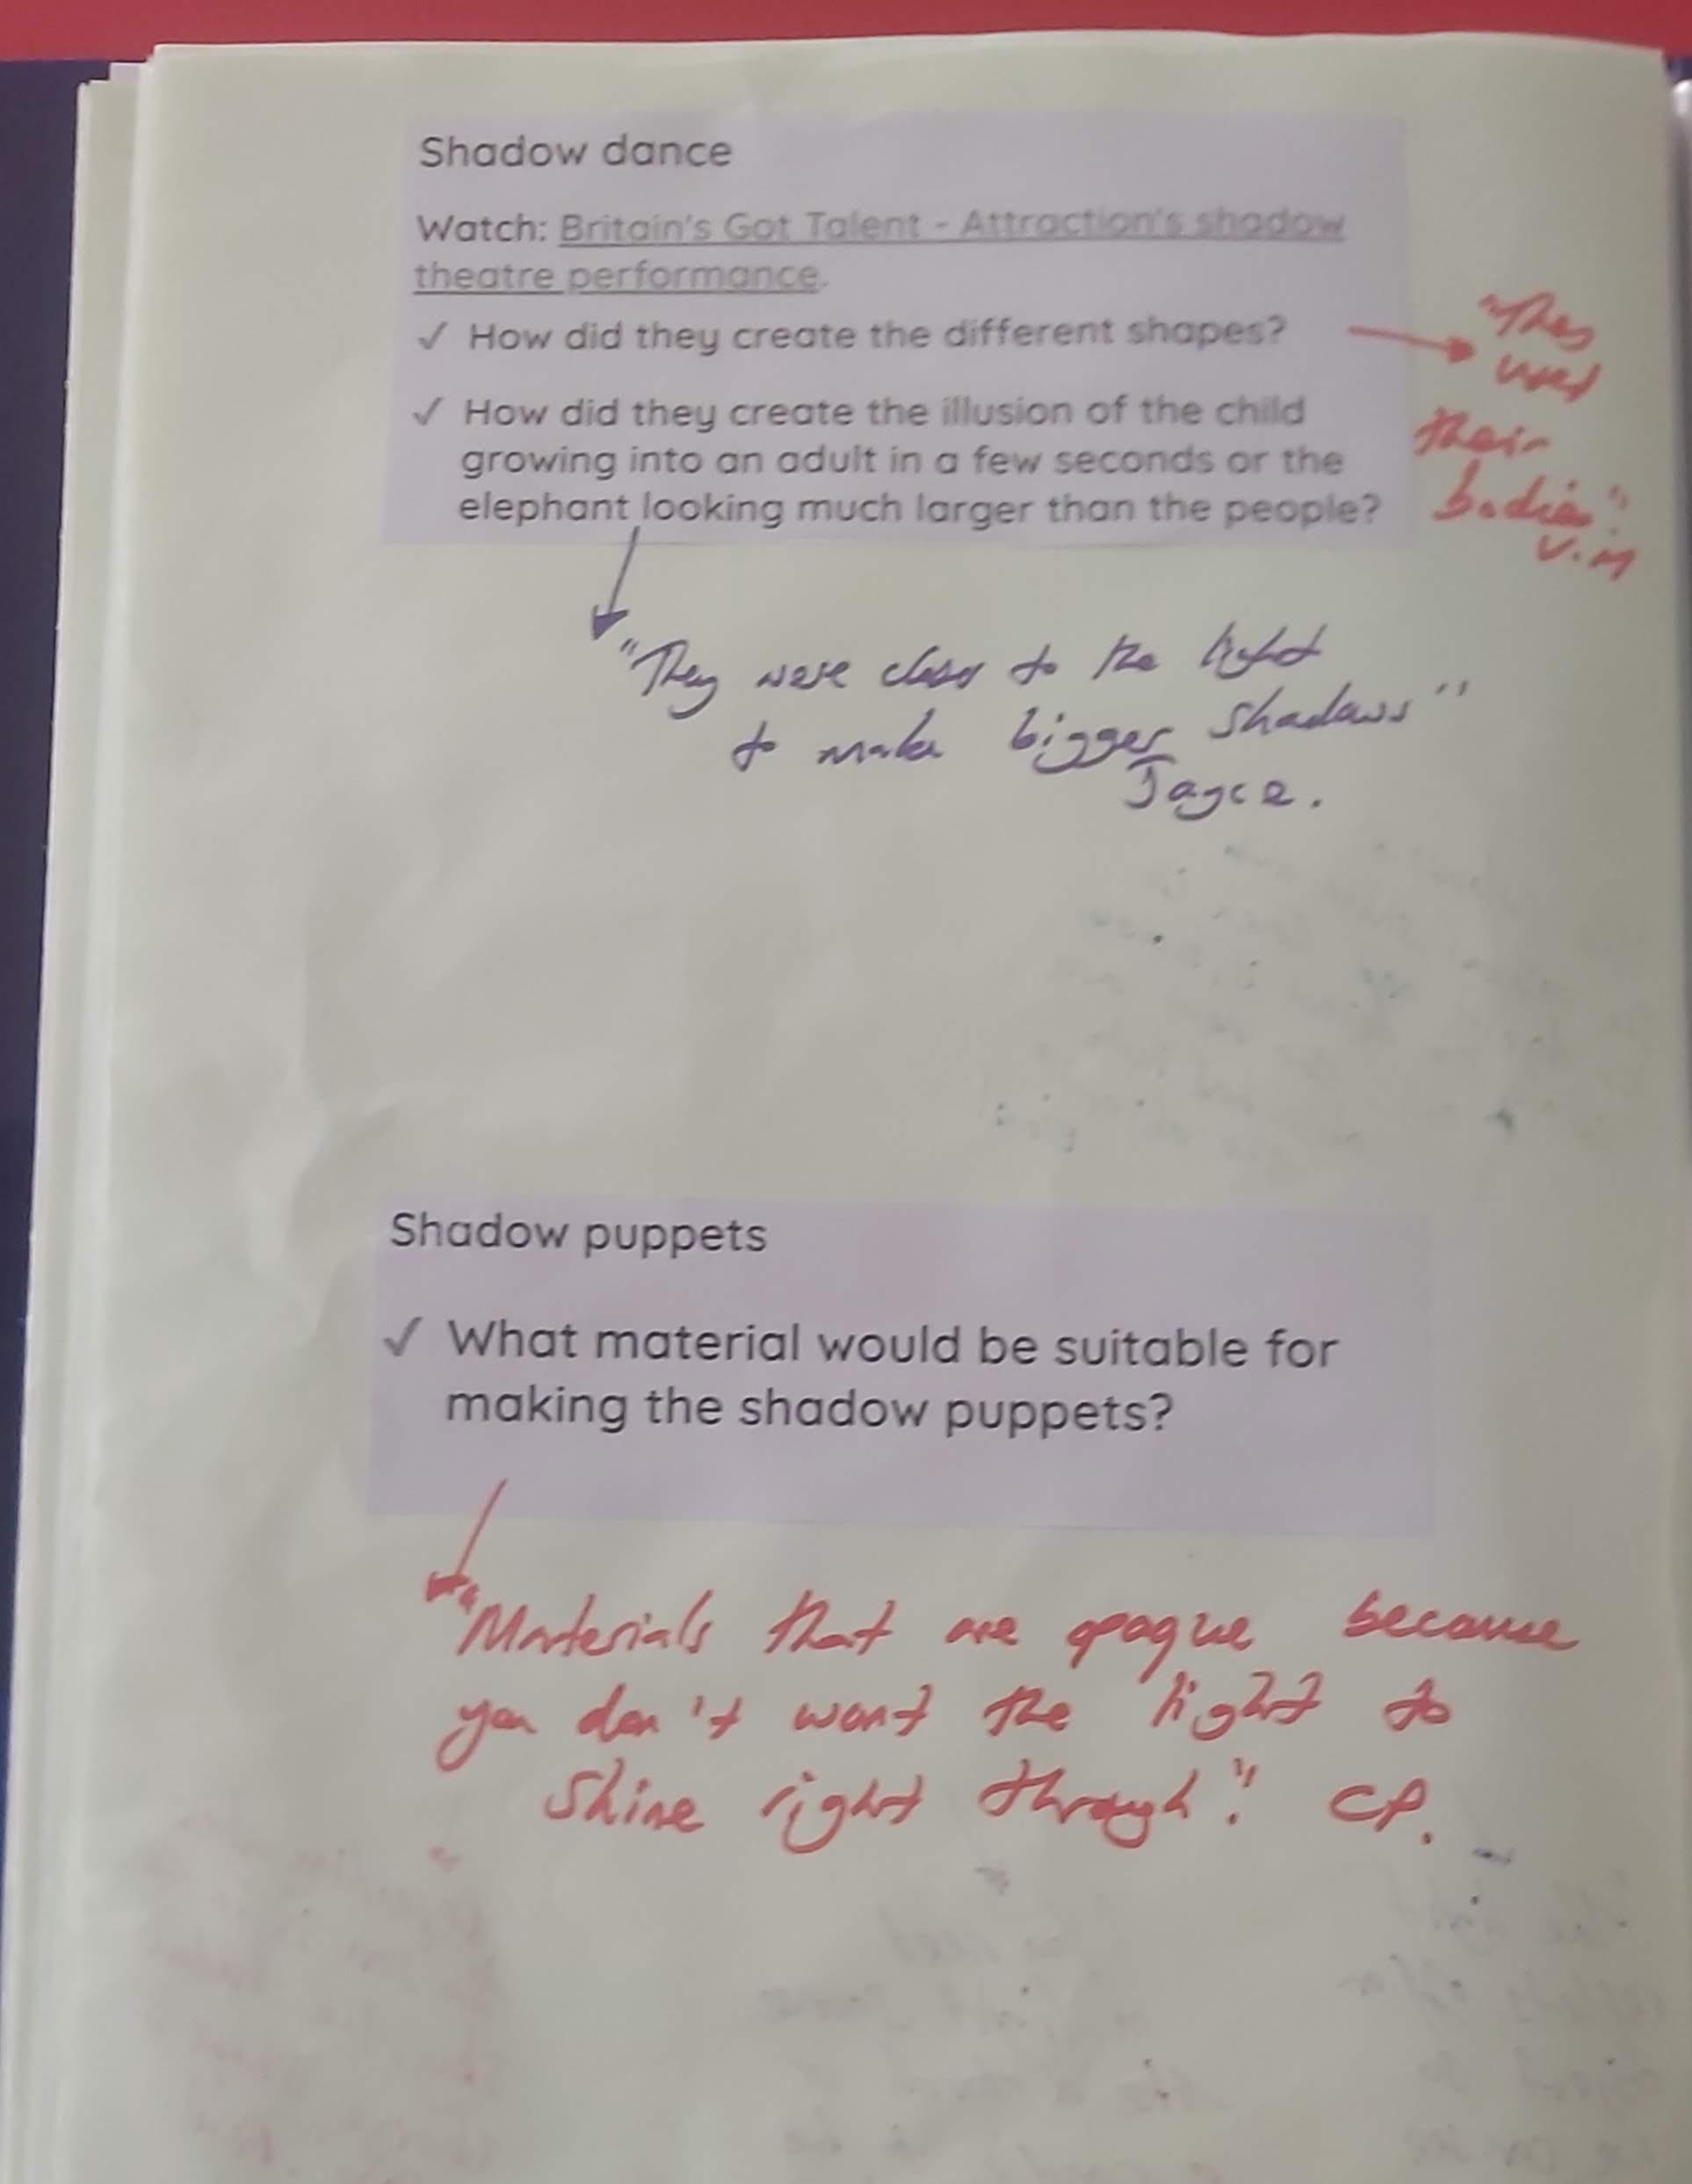 Shadow dance
Watch: Britain's Got Talent - Attraction's shadow
theatre performance.
✓ How did they create the different shapes?
"They
used
their
bodies".
V.M
✓ How did they create the illusion of the child
growing into an adult in a few seconds or the
elephant looking much larger than the people?
"They were closer to the light
to make bigger shadows"
Jayce.
Shadow puppets
✓ What material would be suitable for
making the shadow puppets?
"Materials that are opaque because
you don't want the light to
shine right through". CP.